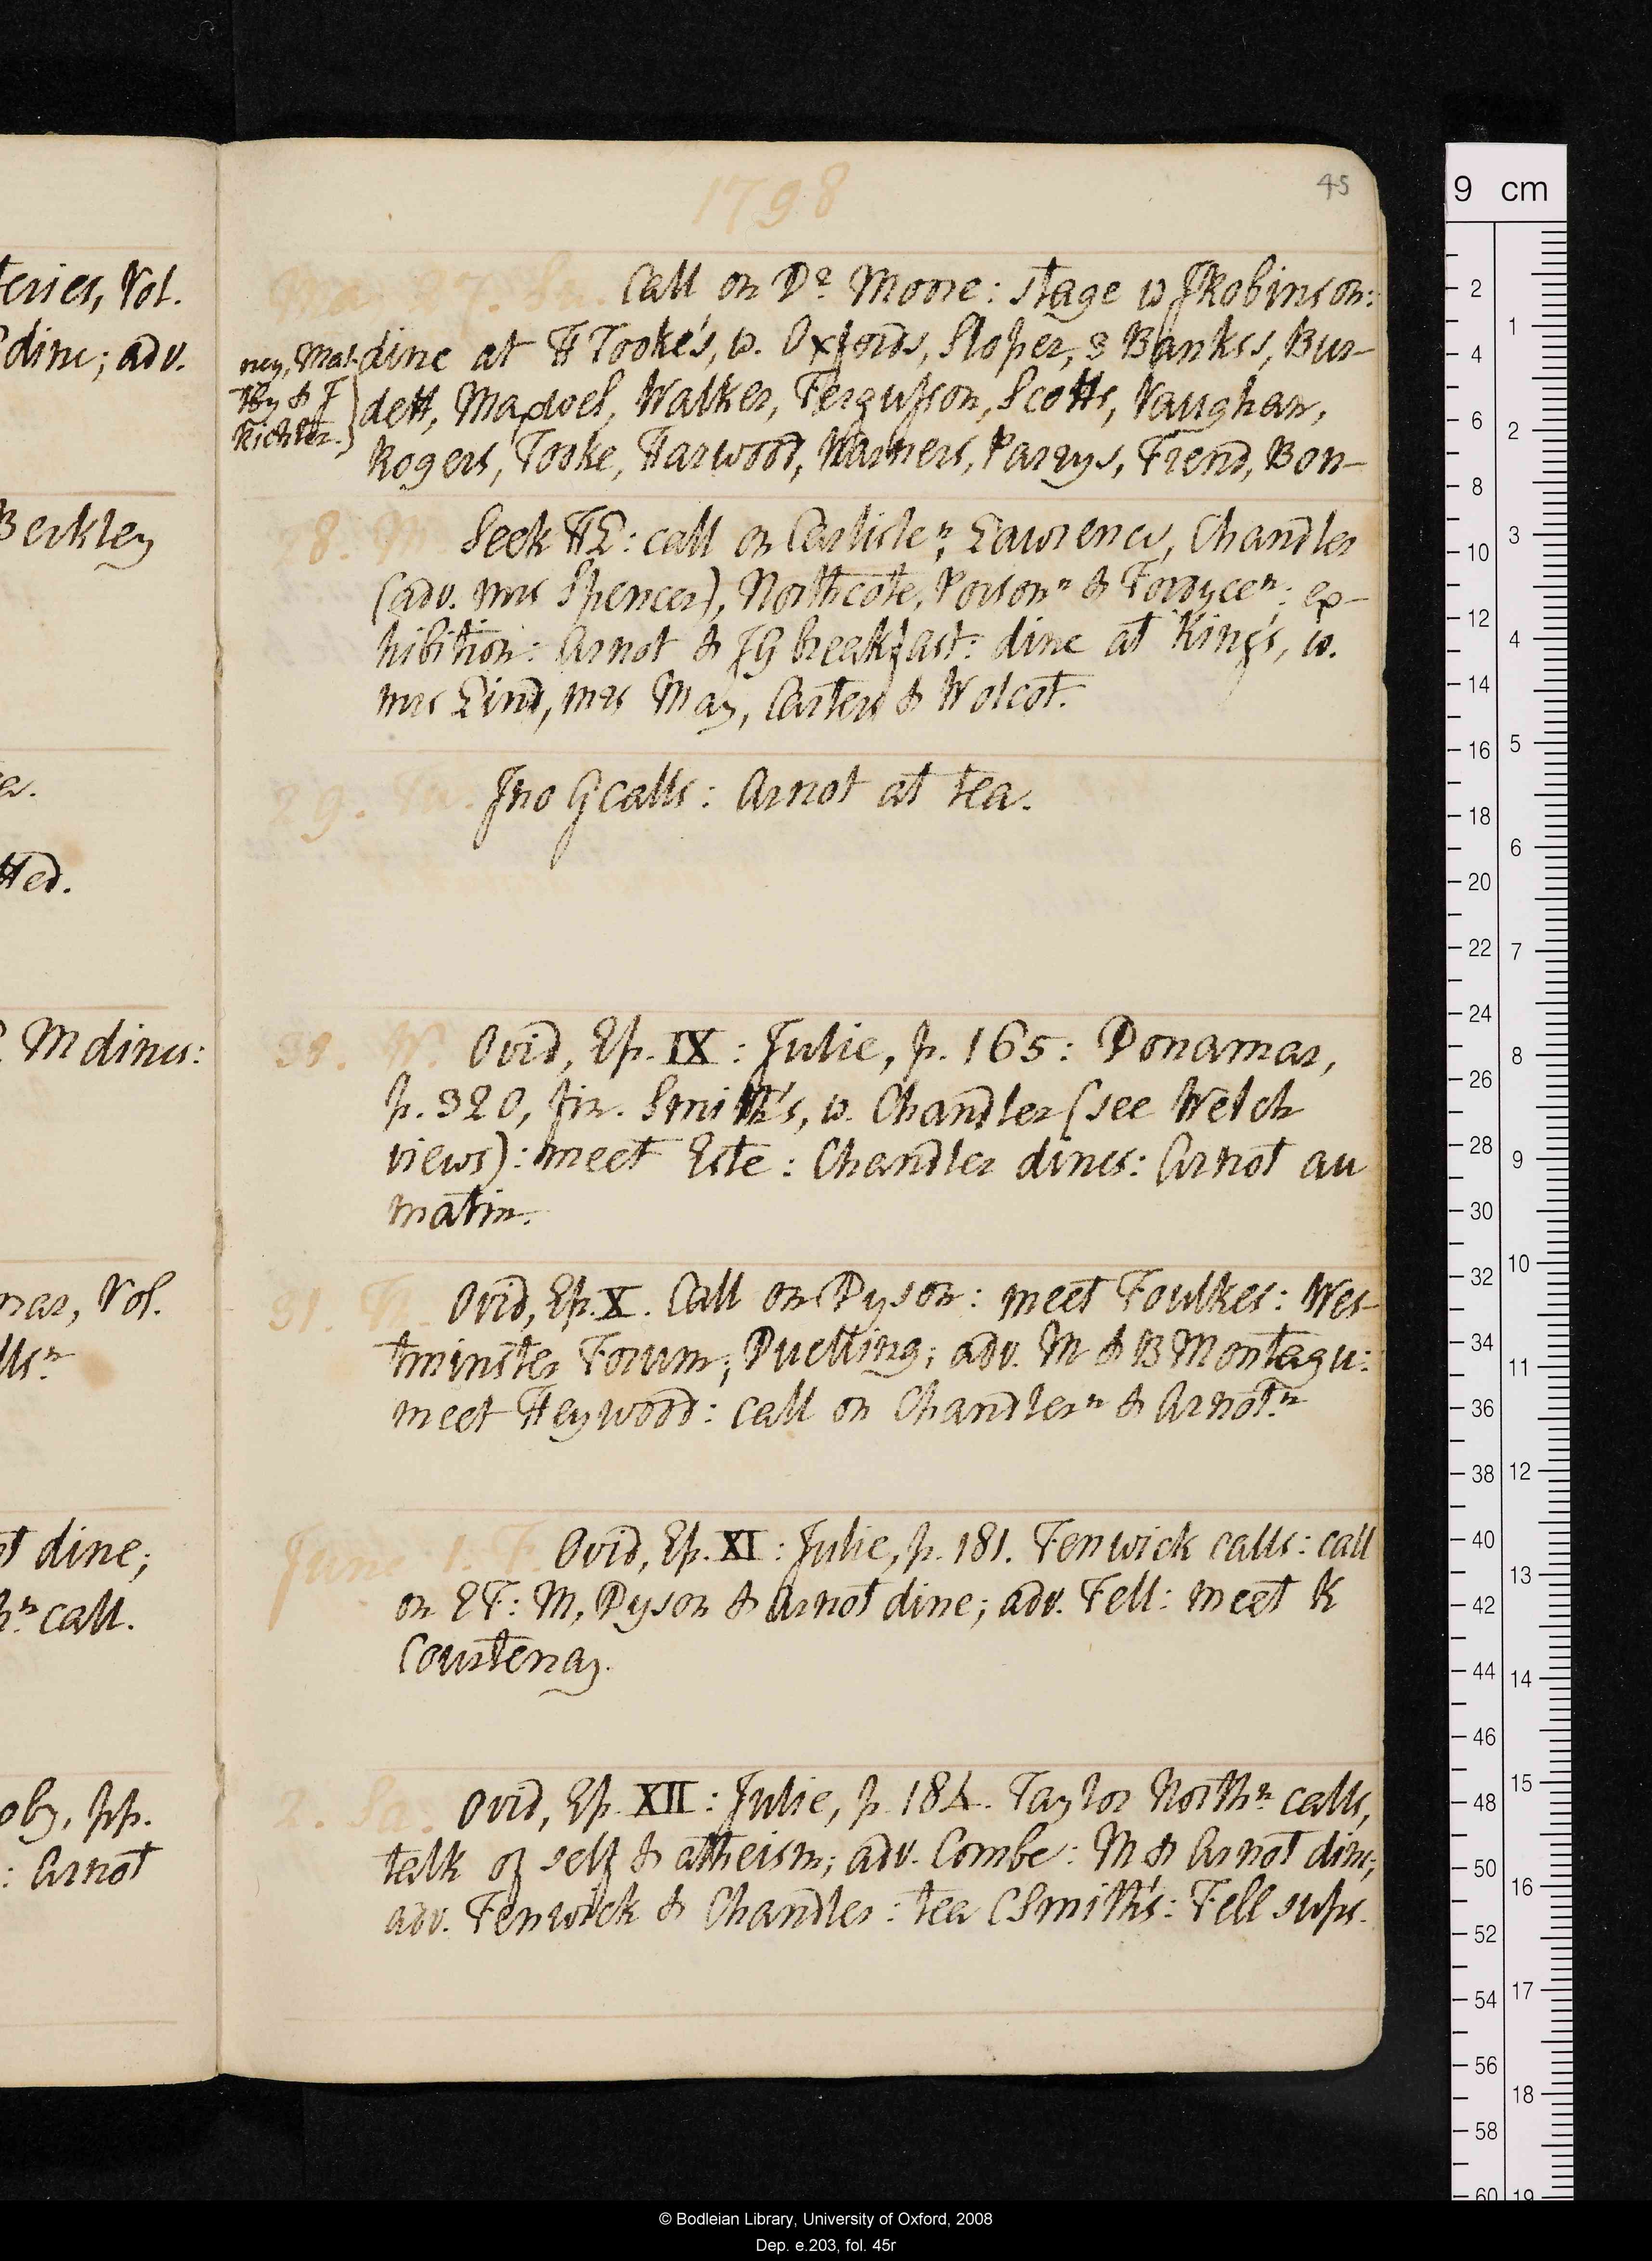 teries, Vol.
dine; adv.
Berkley
Ma. 27. Su.
M dines:
nar, Vol.
lls.n
dine;
call.
oby, pp.
: Arnot
1798
45
Call on Dr Moore: stage w J Robinson:
dine at H Tooke's, w. Oxfords, Sloper, 3 Bankes, Bur-
dett, Maxwel, Walker, Fergusson, Scotts, Vaughan,
Rogers, Tooke, Harwood, Warners, Parrys, Frend, Bon-
ney, Mat-
thy & J
Richter.
28. M Seek HL: call on Carlisle n, Lawrence, Chandler
(adv. mrs Spencer), Northcote, Porson n & Fordyce n; ex-
hibition: Arnot & JG breakfast: dine at King's, w.
mrs Lind, mrs May, Carters & Wolcot.
29. Tu. Jno G calls: Arnot at tea.
30. W. Ovid, Ep. IX: Julie, p. 165: Donamar,
p. 320, fin. Smith's, w. Chandler (see Welch
views): meet Este: Chandler dines: Arnot au
matin.
31. Th. Ovid, Ep. X. Call on Dyson: meet Foulkes: Wes-
tminster Forum; Duelling; adv. M & B Montagu:
meet Heywood: call on Chandler n & Arnot. n
June 1. F. Ovid, Ep. XI: Julie, p. 181. Fenwick calls: call
on EF: M, Dyson & Arnot dine; adv. Fell: meet K
Courtenay.
2. Sa. Ovid, Ep. XII: Julie, p. 184. Taylor North n calls,
talk of self & atheism; adv. Combe: M & Arnot dine;
adv. Fenwick & Chandler: tea C Smith's: Fell sups.
9 cm
2
4
6
8
10
12
14
16
18
20
22
24
26
28
30
32
34
36
38
40
42
44
46
48
50
52
54
56
58
60
1
2
3
4
5
6
7
8
9
10
11
12
13
14
15
16
17
18
19
© Bodleian Library, University of Oxford, 2008
Dep. e.203, fol. 45r